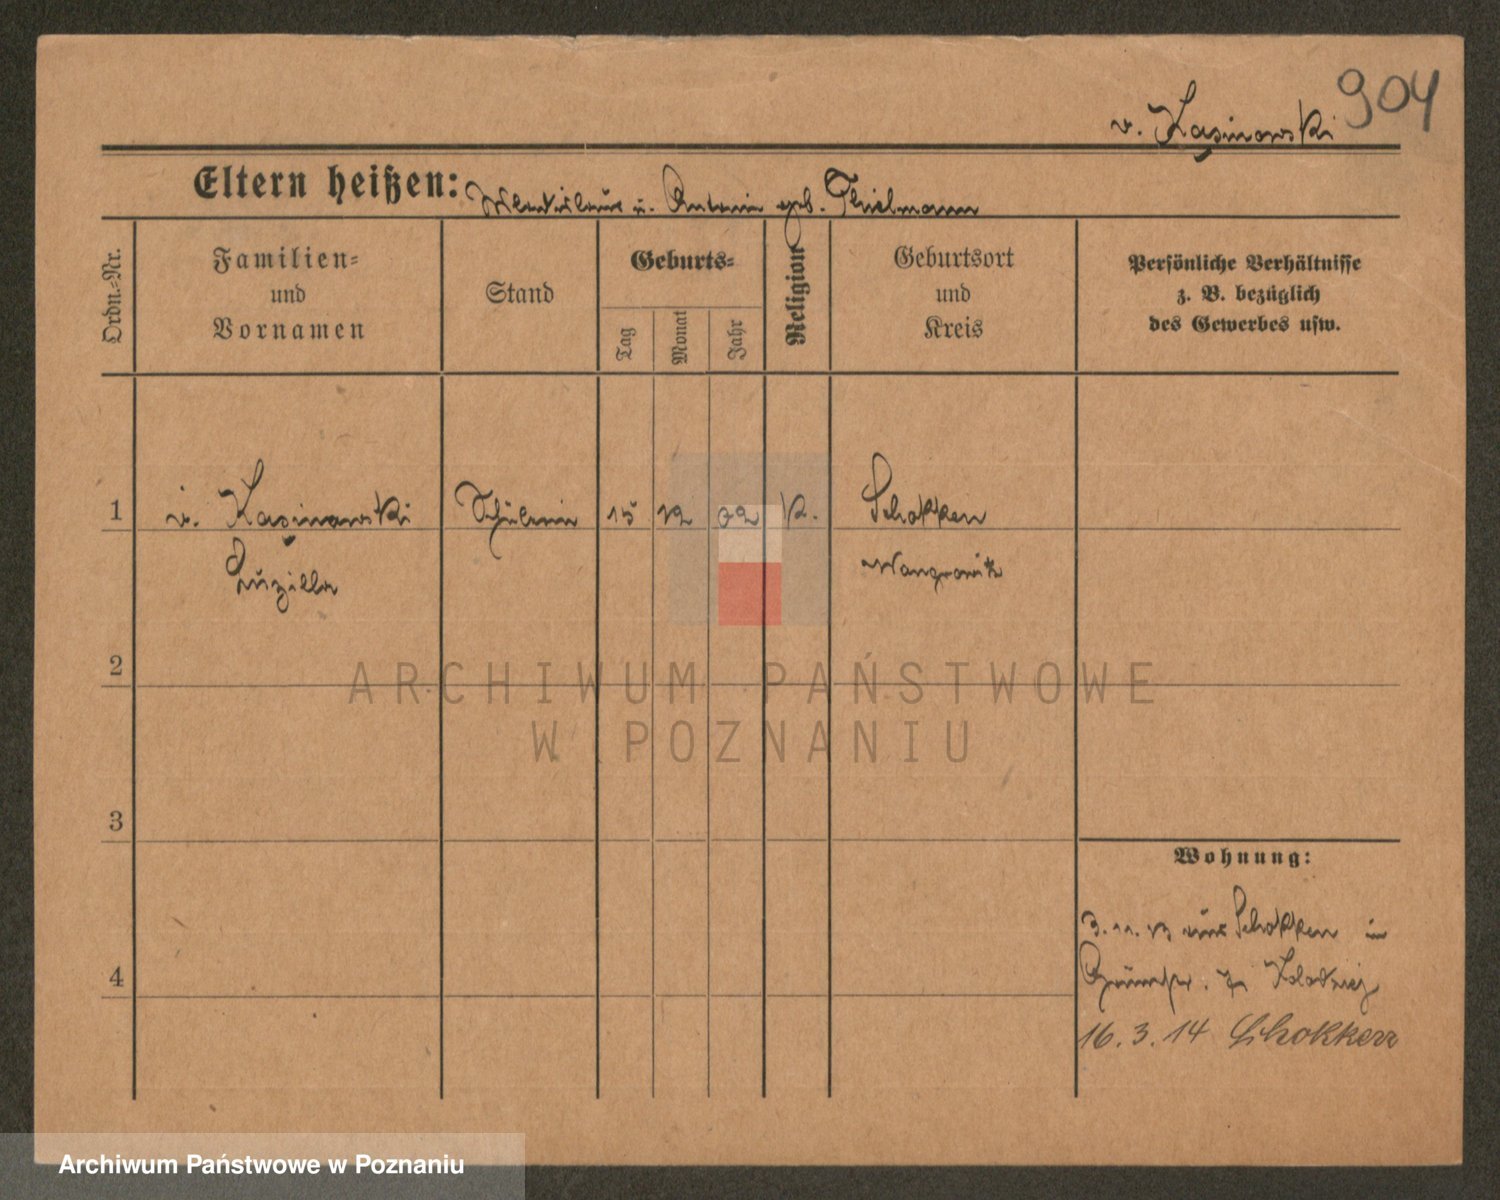 904
v. Kasinowski
Eltern heißen: Wladislaus u. Antonie geb. Thielmann
Ordn.-Nr.
Familien-
und
Vornamen
Stand
Geburts-
Tag
Monat
Jahr
Religion
Geburtsort
und
Kreis
Persönliche Verhältnisse
z. B. bezüglich
des Gewerbes usw.
1 v. Kasinowski Schülerin 15 12 02 K. Schokken
Luzilla Wongrowitz
2
3
4
Wohnung:
3.11.13 aus Schokken in
16.3.14 Schokken
ARCHIWUM PAŃSTWOWE
W POZNANIU
Archiwum Państwowe w Poznaniu